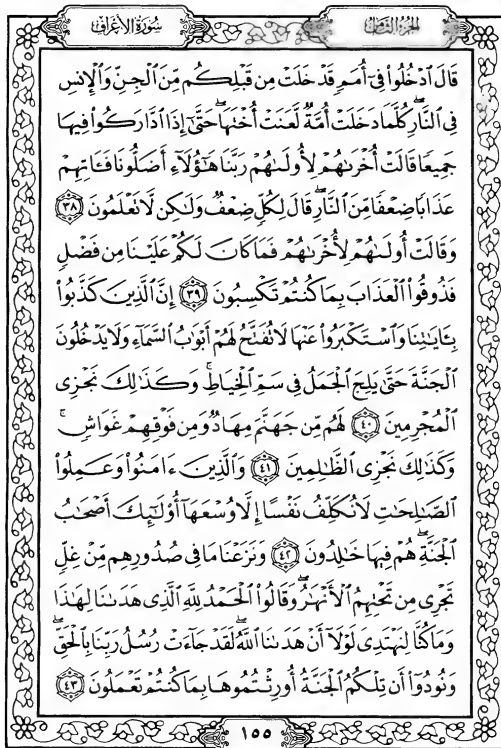 سُورَةُ الْأَعْرَافِ
الجزء الثامن
قَالَ ٱدۡخُلُواْ فِيٓ أُمَمٖ قَدۡ خَلَتۡ مِن قَبۡلِكُم مِّنَ ٱلۡجِنِّ وَٱلۡإِنسِ
فِي ٱلنَّارِۖ كُلَّمَا دَخَلَتۡ أُمَّةٞ لَّعَنَتۡ أُخۡتَهَاۖ حَتَّىٰٓ إِذَا ٱدَّارَكُواْ فِيهَا
جَمِيعٗا قَالَتۡ أُخۡرَىٰهُمۡ لِأُولَىٰهُمۡ رَبَّنَا هَٰٓؤُلَآءِ أَضَلُّونَا فَـَٔاتِهِمۡ
عَذَابٗا ضِعۡفٗا مِّنَ ٱلنَّارِۖ قَالَ لِكُلّٖ ضِعۡفٞ وَلَٰكِن لَّا تَعۡلَمُونَ ٣٨
وَقَالَتۡ أُولَىٰهُمۡ لِأُخۡرَىٰهُمۡ فَمَا كَانَ لَكُمۡ عَلَيۡنَا مِن فَضۡلٖ
فَذُوقُواْ ٱلۡعَذَابَ بِمَا كُنتُمۡ تَكۡسِبُونَ ٣٩ إِنَّ ٱلَّذِينَ كَذَّبُواْ
بِـَٔايَٰتِنَا وَٱسۡتَكۡبَرُواْ عَنۡهَا لَا تُفَتَّحُ لَهُمۡ أَبۡوَٰبُ ٱلسَّمَآءِ وَلَا يَدۡخُلُونَ
ٱلۡجَنَّةَ حَتَّىٰ يَلِجَ ٱلۡجَمَلُ فِي سَمِّ ٱلۡخِيَاطِۚ وَكَذَٰلِكَ نَجۡزِي
ٱلۡمُجۡرِمِينَ ٤٠ لَهُم مِّن جَهَنَّمَ مِهَادٞ وَمِن فَوۡقِهِمۡ غَوَاشٖۚ
وَكَذَٰلِكَ نَجۡزِي ٱلظَّٰلِمِينَ ٤١ وَٱلَّذِينَ ءَامَنُواْ وَعَمِلُواْ
ٱلصَّٰلِحَٰتِ لَا نُكَلِّفُ نَفۡسًا إِلَّا وُسۡعَهَآ أُوْلَٰٓئِكَ أَصۡحَٰبُ
ٱلۡجَنَّةِۖ هُمۡ فِيهَا خَٰلِدُونَ ٤٢ وَنَزَعۡنَا مَا فِي صُدُورِهِم مِّنۡ غِلّٖ
تَجۡرِي مِن تَحۡتِهِمُ ٱلۡأَنۡهَٰرُۖ وَقَالُواْ ٱلۡحَمۡدُ لِلَّهِ ٱلَّذِي هَدَىٰنَا لِهَٰذَا
وَمَا كُنَّا لِنَهۡتَدِيَ لَوۡلَآ أَنۡ هَدَىٰنَا ٱللَّهُۖ لَقَدۡ جَآءَتۡ رُسُلُ رَبِّنَا بِٱلۡحَقِّۖ
وَنُودُوٓاْ أَن تِلۡكُمُ ٱلۡجَنَّةُ أُورِثۡتُمُوهَا بِمَا كُنتُمۡ تَعۡمَلُونَ ٤٣
١٥٥